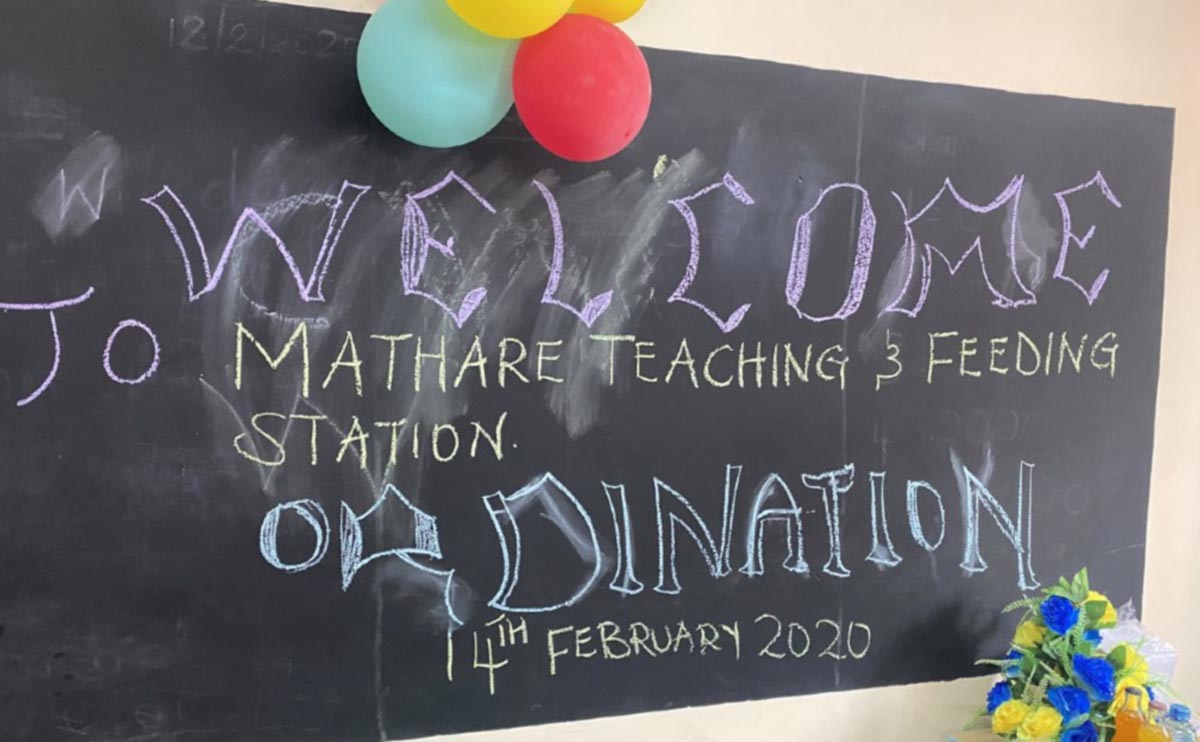 12/2/2020
W
WELCOME
TO MATHARE TEACHING & FEEDING
STATION.
ORDINATION
14TH FEBRUARY 2020